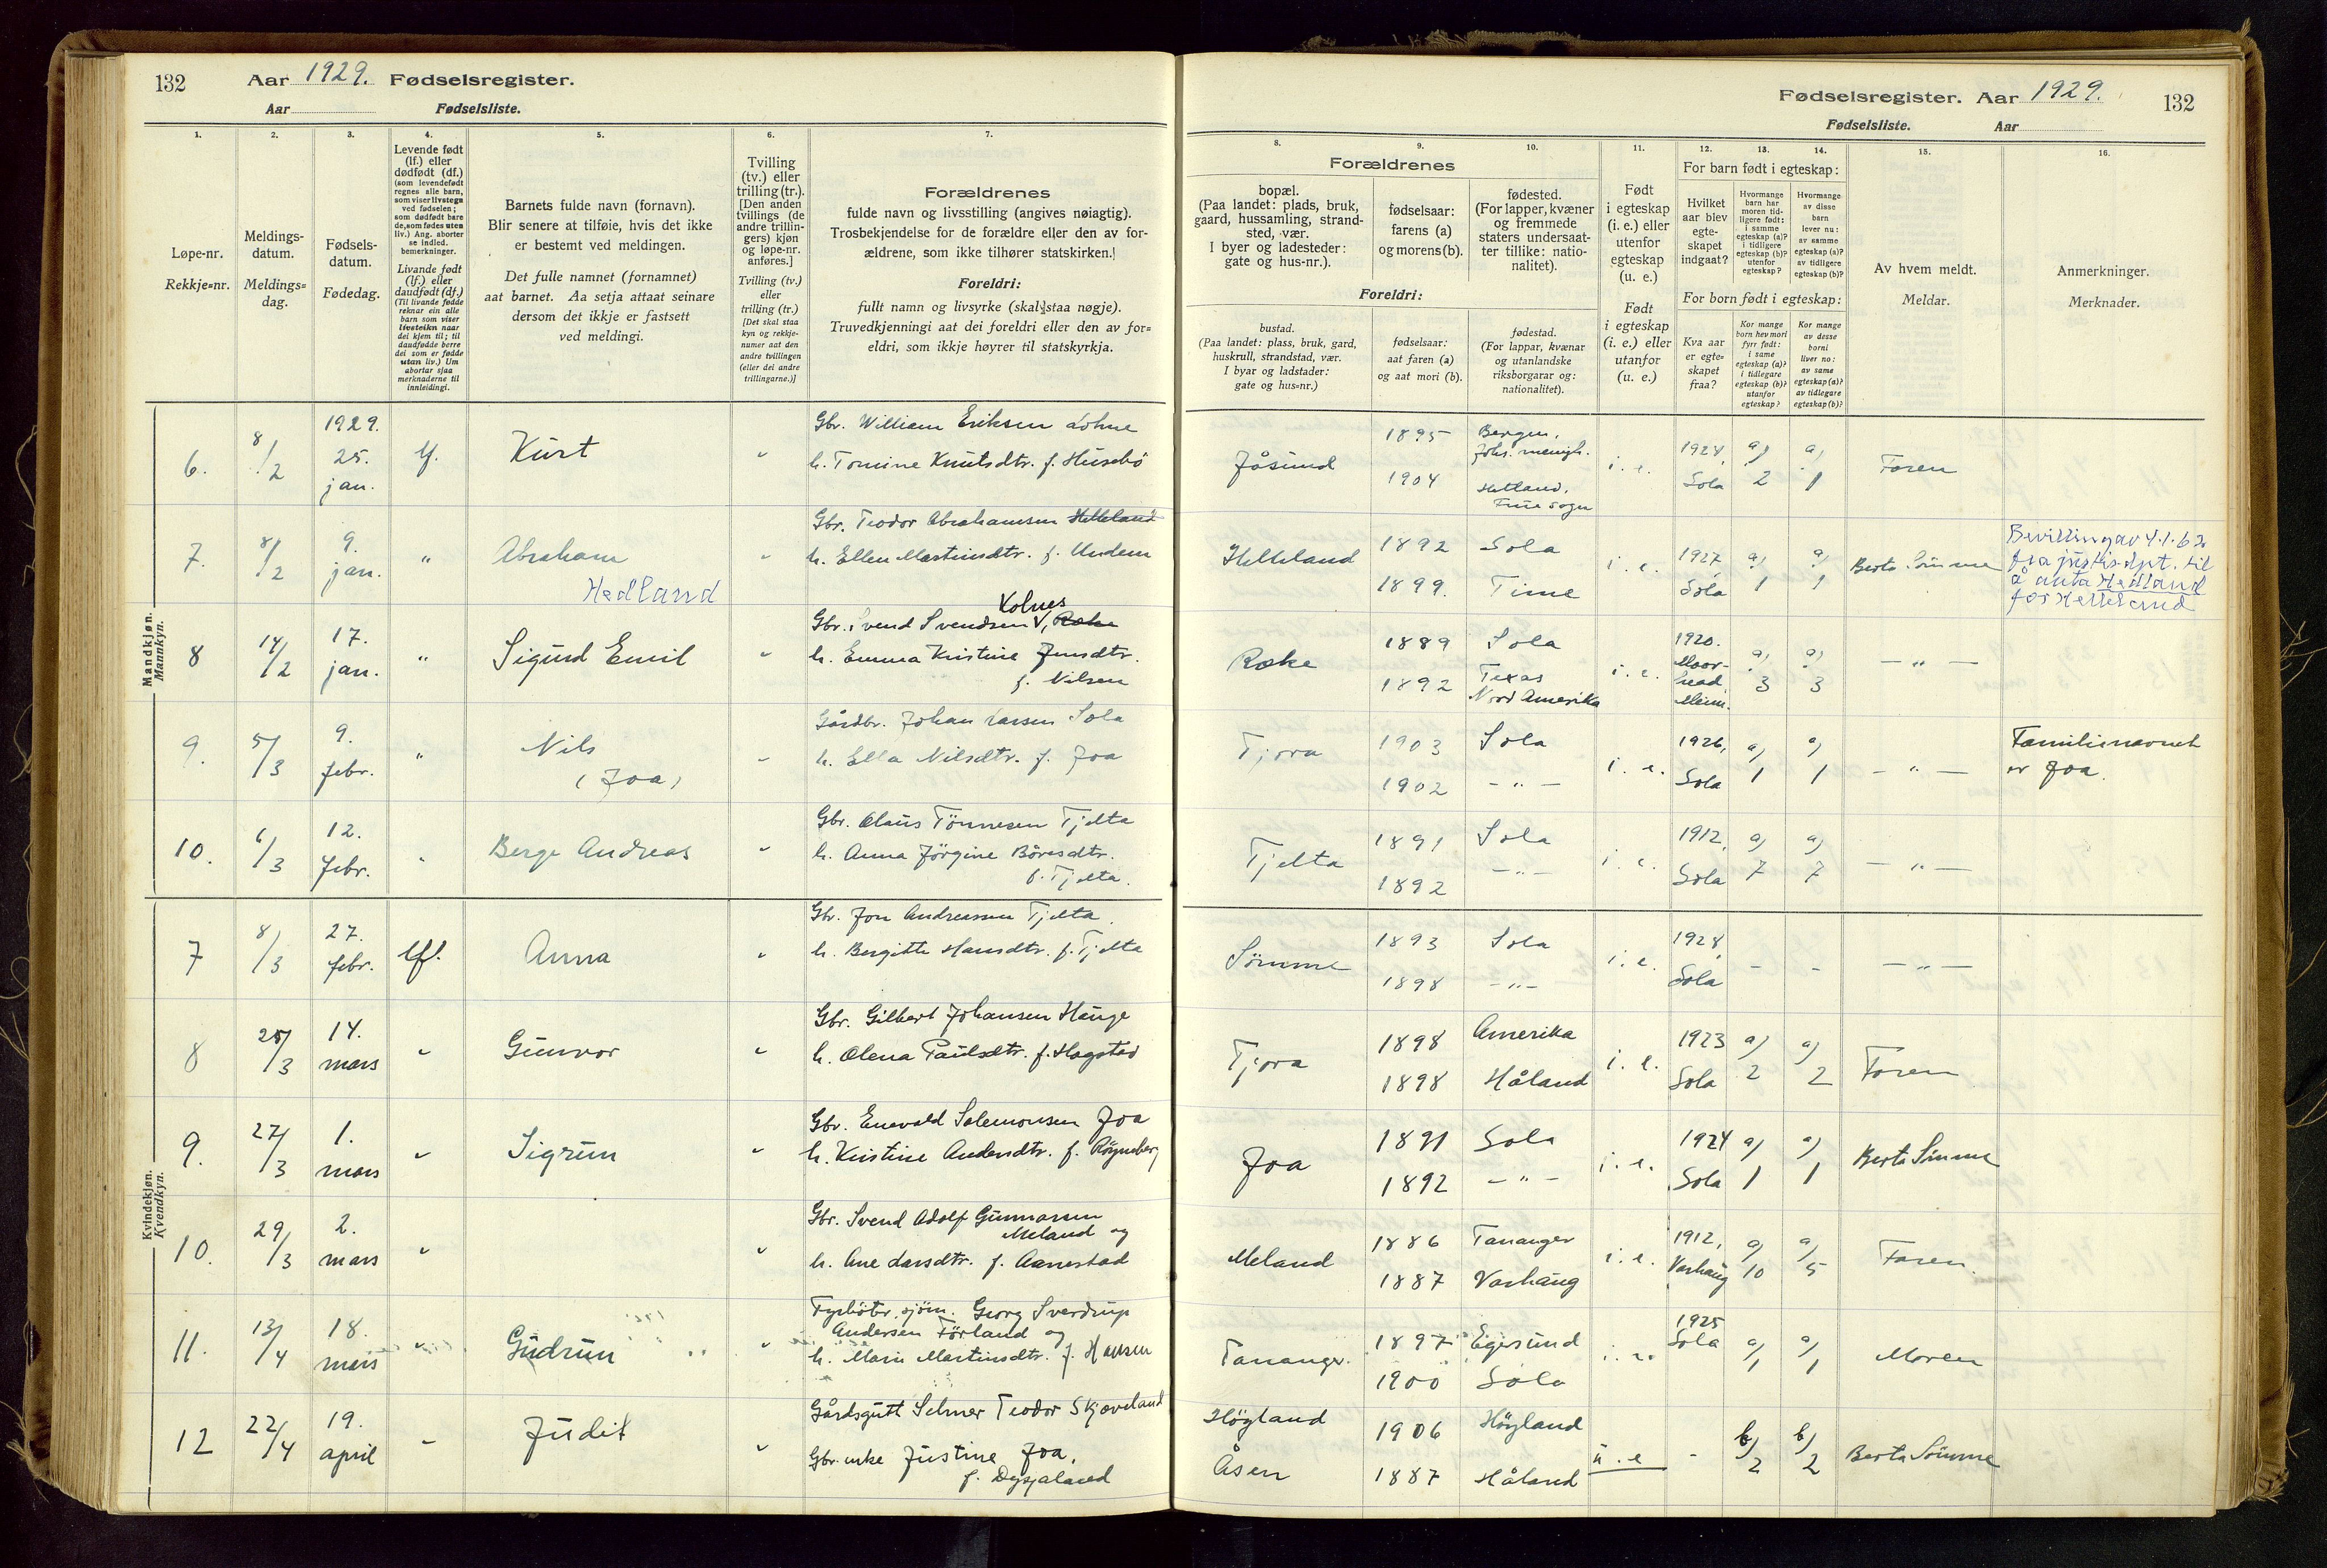 132 Aar 1929. Fødselsregister.
Aar Fødselsliste.
1. 2. 3. 4. 5. 6. 7.
Løpe-nr.
Rekkje=nr.
Meldings-
datum.
Meldings=
dag.
Fødsels-
datum.
Fødedag.
Levende født
(lf.) eller
dødfødt (df.)
(som levendefødt
regnes alle barn,
som viser livstegn
ved fødselen;
som dødfødt bare
de, som fødes uten
liv.) Ang. aborter
se indled.
bemerkninger.
Livande født
(lf.) eller
daudfødt (df.)
(Til livande fødde
reknar ein alle
barn som viser
livsteikn naar
dei kjem til; til
daudfødde berre
dei som er fødde
utan liv.) Um
abortar sjaa
merknaderne til
innleidingi.
Barnets fulde navn (fornavn).
Blir senere at tilføie, hvis det ikke
er bestemt ved meldingen.
Det fulle namnet (fornamnet)
aat barnet. Aa setja attaat seinare
dersom det ikkje er fastsett
ved meldingi.
Tvilling
(tv.) eller
trilling (tr.).
[Den anden
tvillings (de
andre trillin-
gers) kjøn
og løpe-nr.
anføres.]
Tvilling (tv.)
eller
trilling (tr.)
[Det skal staa
kyn og rekkje-
numer aat den
andre tvillingen
(eller dei andre
trillingarne.)]
Forældrenes
fulde navn og livsstilling (angives nøiagtig).
Trosbekjendelse for de forældre eller den av for-
ældrene, som ikke tilhører statskirken.
Foreldri:
fullt namn og livsyrke (skal staa nøgje).
Truvedkjenningi aat dei foreldri eller den av for=
eldri, som ikkje høyrer til statskyrkja.
Mandkjøn.
Mannkyn.
6. 8/2 1929. 25. jan. lf. Kurt " Gbr. William Eriksen Lohne
h. Tomine Knutsdtr. f. Husebö
7. 8/2 9. jan. " Abraham Hedland " Gbr. Teodor Abrahamsen Helleland
h. Ellen Martinsdtr. f. Undem
8 14/2 17. jan. " Sigurd Emil " Gbr. Svend Svendsen Kolnes, Ræke
h. Emma Kristine Jensdtr.
f. Nilsen
9. 5/3 9. febr. " Nils (Joa) " Gårdbr. Johan Larsen Sola
h. Ella Nilsdtr. f. Joa
10. 6/3 12. febr. " Berge Andreas " Gbr. Olaus Tönnesen Tjelta
h. Anna Jörgine Båresdtr.
f. Tjelta.
Kvindekjøn.
Kvendkyn.
7 8/3 27. febr. lf. Anna " Gbr. Jon Andreassen Tjelta.
h. Bergitte Hansdtr. f. Tjelta
8 25/3 14. mars " Gunvor " Gbr. Gilbert Johansen Hauge
h. Olena Paulsdtr. f. Hogstad
9. 27/3 1. mars " Sigrun " Gbr. Enevald Salemonsen Joa
h. Kristine Andersdtr. f. Röyneberg
10. 29/3 2. mars " " Gbr. Svend Adolf Gunnarsen
Meland og
h. Ane Larsdtr. f. Aanestad
11. 13/4 18. mars " Gudrun " sjöm. Georg Sverdrup
Andersen Förland og
h. Marie Martinsdtr. f. Hansen
12 22/4 19. april " Judit " Gårdsgutt Selmer Teodor Skjæveland
Gbr.enke Justine Joa,
f. Dysjaland
Fødselsregister. Aar 1929. 132
Fødselsliste. Aar
8. 9. 10. 11. 12. 13. 14. 15. 16.
Forældrenes
bopæl.
(Paa landet: plads, bruk,
gaard, hussamling, strand-
sted, vær.
I byer og ladesteder:
gate og hus-nr.).
fødselsaar:
farens (a)
og morens (b).
fødested.
(For lapper, kvæner
og fremmede
staters undersaat-
ter tillike: natio-
nalitet).
Foreldri:
bustad.
(Paa landet: plass, bruk, gard,
huskrull, strandstad, vær.
I byar og ladstader:
gate og hus=nr.)
fødselsaar:
aat faren (a)
og aat mori (b).
fødestad.
(For lappar, kvænar
og utanlandske
riksborgarar og:
nationalitet).
Født
i egteskap
(i. e.) eller
utenfor
egteskap
(u. e.)
Født
i egteskap
(i. e.) eller
utanfor
(u. e.)
For barn født i egteskap:
Hvilket
aar blev
egte-
skapet
indgaat?
Hvormange
barn har
moren tid-
ligere født:
i samme
egteskap (a)?
i tidligere
egteskap (b)?
utenfor
egteskap?
Hvormange
av disse
barn
lever nu:
av samme
egteskap (a)?
av tidligere
egteskap (b)?
For born født i egteskap:
Kva aar
er egte=
skapet
fraa?
Kor mange
born hev mori
fyrr født:
i same
egteskap (a)?
i tidlegare
egteskap (b)?
utanfor
egteskap?
Kor mange
av desse
borni
liver no:
av same
egteskap (a)?
av tidlegare
egteskap (b)?
Av hvem meldt.
Meldar.
Anmerkninger.
Merknader.
Jåsund 1895 Bergen, Johs. menigh. i. e. 1924, Sola a) 2 a) 1 Faren
1904 Hetland, Frue sogn
Helleland 1892 Sola i. e. 1927, Sola a) 1 a) 1 Berta Sömme
1899. Time
Bevilling av 4.1.62
fra justisdpt. til
å anta Hedland
for Helleland
Ræke 1889 Sola i. e. 1920. Moor-head a) 3 a) 3 — " —
1892 Texas Nord Amerika
Tjora 1903 Sola i. e. 1926, Sola a) 1 a) 1 — " —
1902 — " —
Familienavnet
er Joa.
Tjelta 1891 Sola i. e. 1912, Sola a) 7 a) 7 — " —
1892 — " —
Sömme 1893 Sola i. e. 1928, Sola - - — " —
1898 — " —
Tjora 1898 Amerika i. e. 1923 Sola a) 2 a) 2 Faren
1898 Håland
Joa 1891 Sola i. e. 1924 Sola a) 1 a) 1 Berta Sömme
1892 — " —
Meland 1886 Tananger i. e. 1912, Varhaug a) 10 a) 5 Faren.
1887 Varhaug
Tananger. 1897 Egersund i. e. 1925 Sola a) 1 a) 1 Moren
1900 Sola
Högland 1906 Högland u. e - b) 2 b) 2 Berta Sömme
Åsen 1887 Håland